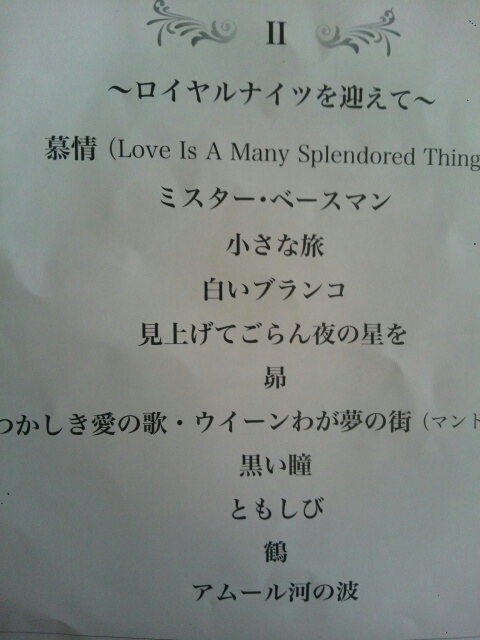 II
～ロイヤルナイツを迎えて～
慕情 (Love Is A Many Splendored Thing
ミスター・ベースマン
小さな旅
白いブランコ
見上げてごらん夜の星を
昴
つかしき愛の歌・ウイーンわが夢の街（マンド
黒い瞳
ともしび
鶴
アムール河の波